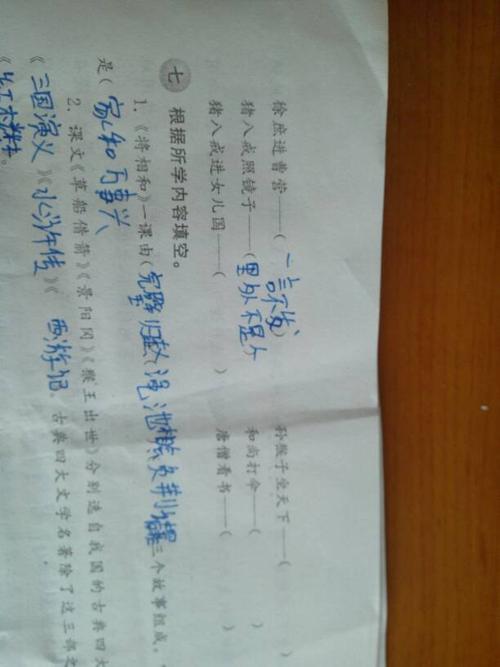 徐庶进曹营——(一言不发) 孙猴子坐天下——( )
猪八戒照镜子——(里外不是人 和尚打伞——( )
猪八戒进女儿国——( ) 唐僧看书——( )
七 根据所学内容填空。
1.《将相和》一课由(完璧归赵 渑池 负荆 三个故事组成。
是(家和万事兴
2. 课文《草船借箭》《景阳冈》《猴王出世》分别选自我国的古典四大
《三国演义》《水浒传》《 西游记 古典四大文学名著除了这三部之
《红楼